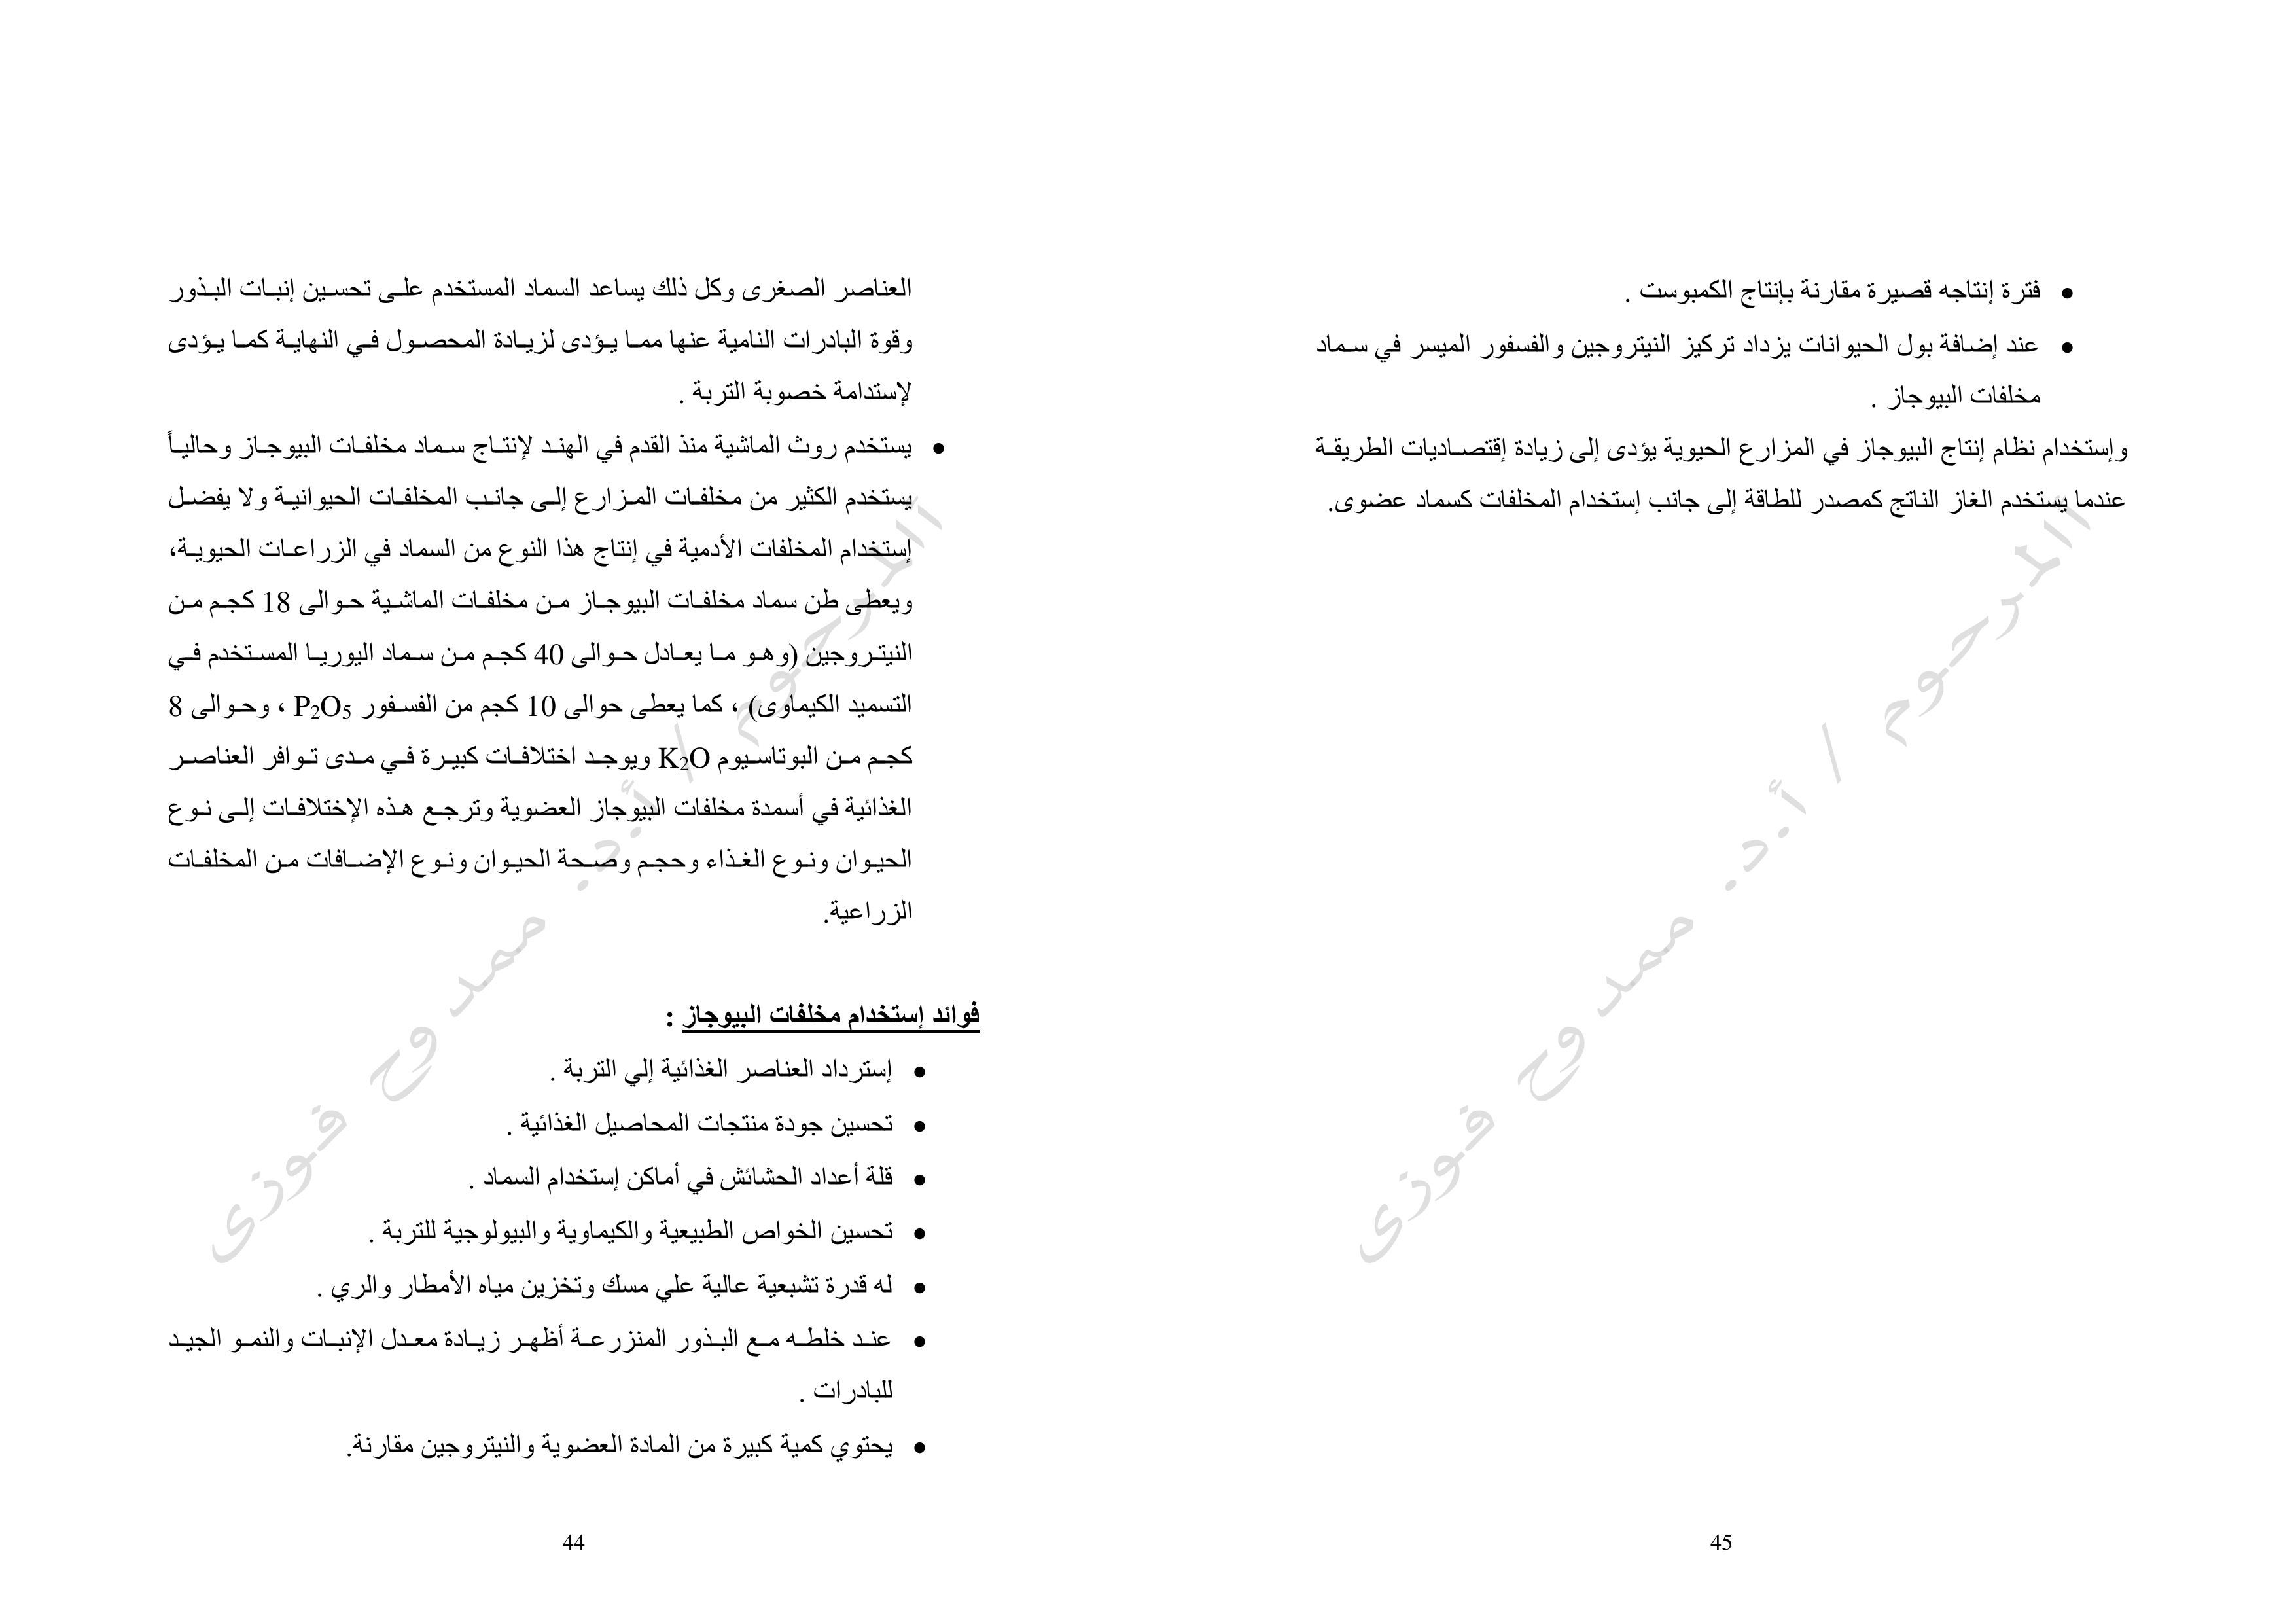 العناصر الصغرى وكل ذلك يساعد السماد المستخدم على تحسين إنبات البذور
وقوة البادرات النامية عنها مما يؤدى لزيادة المحصول في النهاية كما يؤدى
لإستدامة خصوبة التربة .
• يستخدم روث الماشية منذ القدم في الهند لإنتاج سماد مخلفات البيوجاز وحالياً
يستخدم الكثير من مخلفات المزارع إلى جانب المخلفات الحيوانية ولا يفضل
إستخدام المخلفات الأدمية في إنتاج هذا النوع من السماد في الزراعات الحيوية،
ويعطى طن سماد مخلفات البيوجاز من مخلفات الماشية حوالى 18 كجم من
النيتروجين (وهو ما يعادل حوالى 40 كجم من سماد اليوريا المستخدم في
التسميد الكيماوى) ، كما يعطى حوالى 10 كجم من الفسفور P2O5 ، وحوالى 8
كجم من البوتاسيوم K2O ويوجد اختلافات كبيرة في مدى توافر العناصر
الغذائية في أسمدة مخلفات البيوجاز العضوية وترجع هذه الإختلافات إلى نوع
الحيوان ونوع الغذاء وحجم وصحة الحيوان ونوع الإضافات من المخلفات
الزراعية.
فوائد إستخدام مخلفات البيوجاز :
• إسترداد العناصر الغذائية إلي التربة .
• تحسين جودة منتجات المحاصيل الغذائية .
• قلة أعداد الحشائش في أماكن إستخدام السماد .
• تحسين الخواص الطبيعية والكيماوية والبيولوجية للتربة .
• له قدرة تشبعية عالية علي مسك وتخزين مياه الأمطار والري .
• عند خلطه مع البذور المنزرعة أظهر زيادة معدل الإنبات والنمو الجيد
للبادرات .
• يحتوي كمية كبيرة من المادة العضوية والنيتروجين مقارنة.
44
المرحوم / أ.د. ممدوح فوزى
• فترة إنتاجه قصيرة مقارنة بإنتاج الكمبوست .
• عند إضافة بول الحيوانات يزداد تركيز النيتروجين والفسفور الميسر في سماد
مخلفات البيوجاز .
وإستخدام نظام إنتاج البيوجاز في المزارع الحيوية يؤدى إلى زيادة إقتصاديات الطريقة
عندما يستخدم الغاز الناتج كمصدر للطاقة إلى جانب إستخدام المخلفات كسماد عضوى.
45
المرحوم / أ.د. ممدوح فوزى